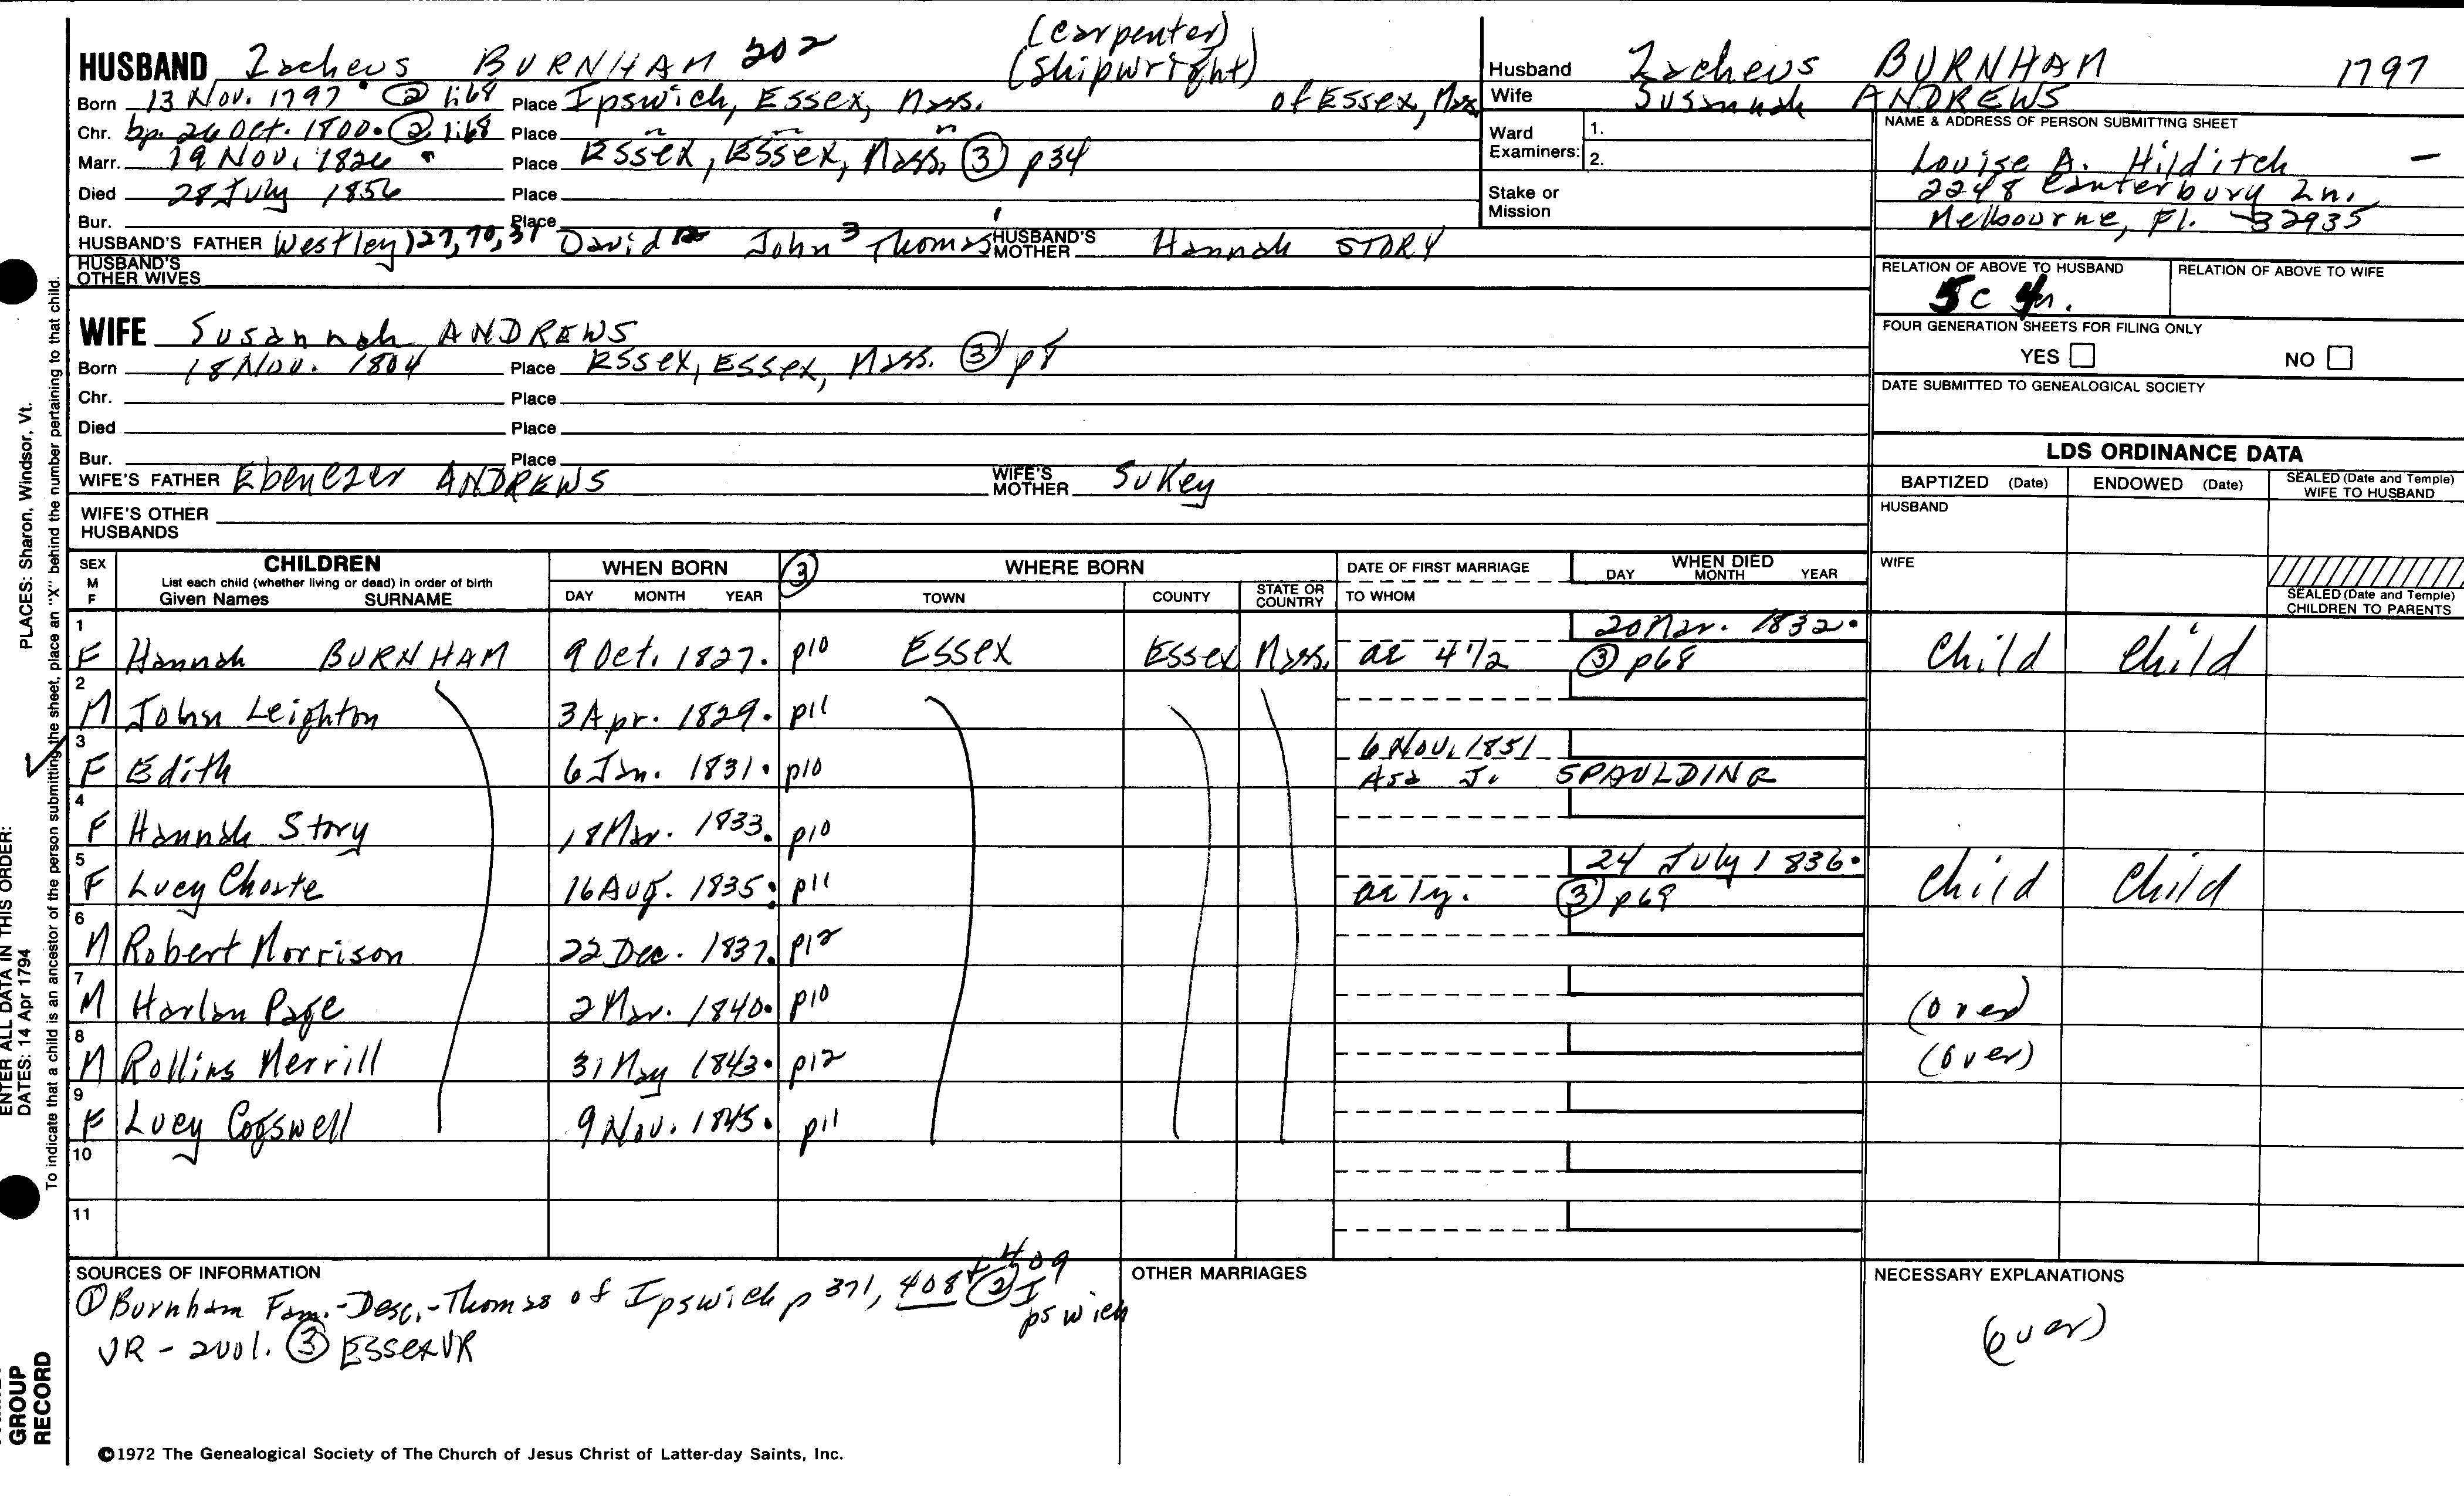 (carpenter)
HUSBAND Zacheus BURNHAM 202 (shipwright)
Born 13 Nov. 1797 ② 1:68 Place Ipswich, Essex, Mass. of Essex, Mass
Chr. bp. 26 Oct. 1800. ② 1:68 Place " " "
Marr. 19 Nov. 1826 Place Essex, Essex, Mass. ③ p34
Died 28 July 1856 Place
Bur. Place
HUSBAND'S FATHER Westley 127, 70, 31 David John 3 Thomas 1 HUSBAND'S MOTHER Hannah STORY
HUSBAND'S OTHER WIVES
WIFE Susannah ANDREWS
Born 18 Nov. 1804 Place Essex, Essex, Mass. ③ p8
Chr. Place
Died Place
Bur. Place
WIFE'S FATHER Ebenezer ANDREWS WIFE'S MOTHER Sukey
WIFE'S OTHER HUSBANDS
Husband Zacheus BURNHAM 1797
Wife Susannah ANDREWS
Ward Examiners: 1.
2.
Stake or Mission
NAME & ADDRESS OF PERSON SUBMITTING SHEET
Louise A. Hilditch
2248 Canterbury Ln.
Melbourne, Fl. 32935
RELATION OF ABOVE TO HUSBAND RELATION OF ABOVE TO WIFE
5c 4r.
FOUR GENERATION SHEETS FOR FILING ONLY
YES NO
DATE SUBMITTED TO GENEALOGICAL SOCIETY
LDS ORDINANCE DATA
BAPTIZED (Date) ENDOWED (Date) SEALED (Date and Temple) WIFE TO HUSBAND
HUSBAND
WIFE
SEALED (Date and Temple) CHILDREN TO PARENTS
SEX M F CHILDREN WHEN BORN ③ WHERE BORN DATE OF FIRST MARRIAGE WHEN DIED
List each child (whether living or dead) in order of birth
Given Names SURNAME DAY MONTH YEAR TOWN COUNTY STATE OR COUNTRY TO WHOM DAY MONTH YEAR
1 20 Mar. 1832.
F Hannah BURNHAM 9 Oct. 1827. p10 Essex Essex Mass. ae 4 1/2 ③ p68 Child Child
2
M John Leighton 3 Apr. 1829. p11
3 6 Nov. 1851
F Edith 6 Jan. 1831. p10 Asa J. SPAULDING
4
F Hannah Story 18 Mar. 1833. p10
5 24 July 1836.
F Lucy Choate 16 Aug. 1835. p11 ae 1y. ③ p69 Child Child
6
M Robert Morrison 22 Dec. 1837. p12
7
M Harlan Page 2 Mar. 1840. p10 (over)
8
M Rollins Merrill 31 May 1843. p12 (over)
9
F Lucy Cogswell 9 Nov. 1845. p11
10
11
SOURCES OF INFORMATION
① Burnham Fam.-Desc.-Thomas of Ipswich p 371, 408 + 409 ② Ipswich
VR - 2vol. ③ Essex VR
OTHER MARRIAGES
NECESSARY EXPLANATIONS
(over)
©1972 The Genealogical Society of The Church of Jesus Christ of Latter-day Saints, Inc.
GROUP RECORD
ENTER ALL DATA IN THIS ORDER:
DATES: 14 Apr 1794 PLACES: Sharon, Windsor, Vt.
To indicate that a child is an ancestor of the person submitting the sheet, place an "X" behind the number pertaining to that child.